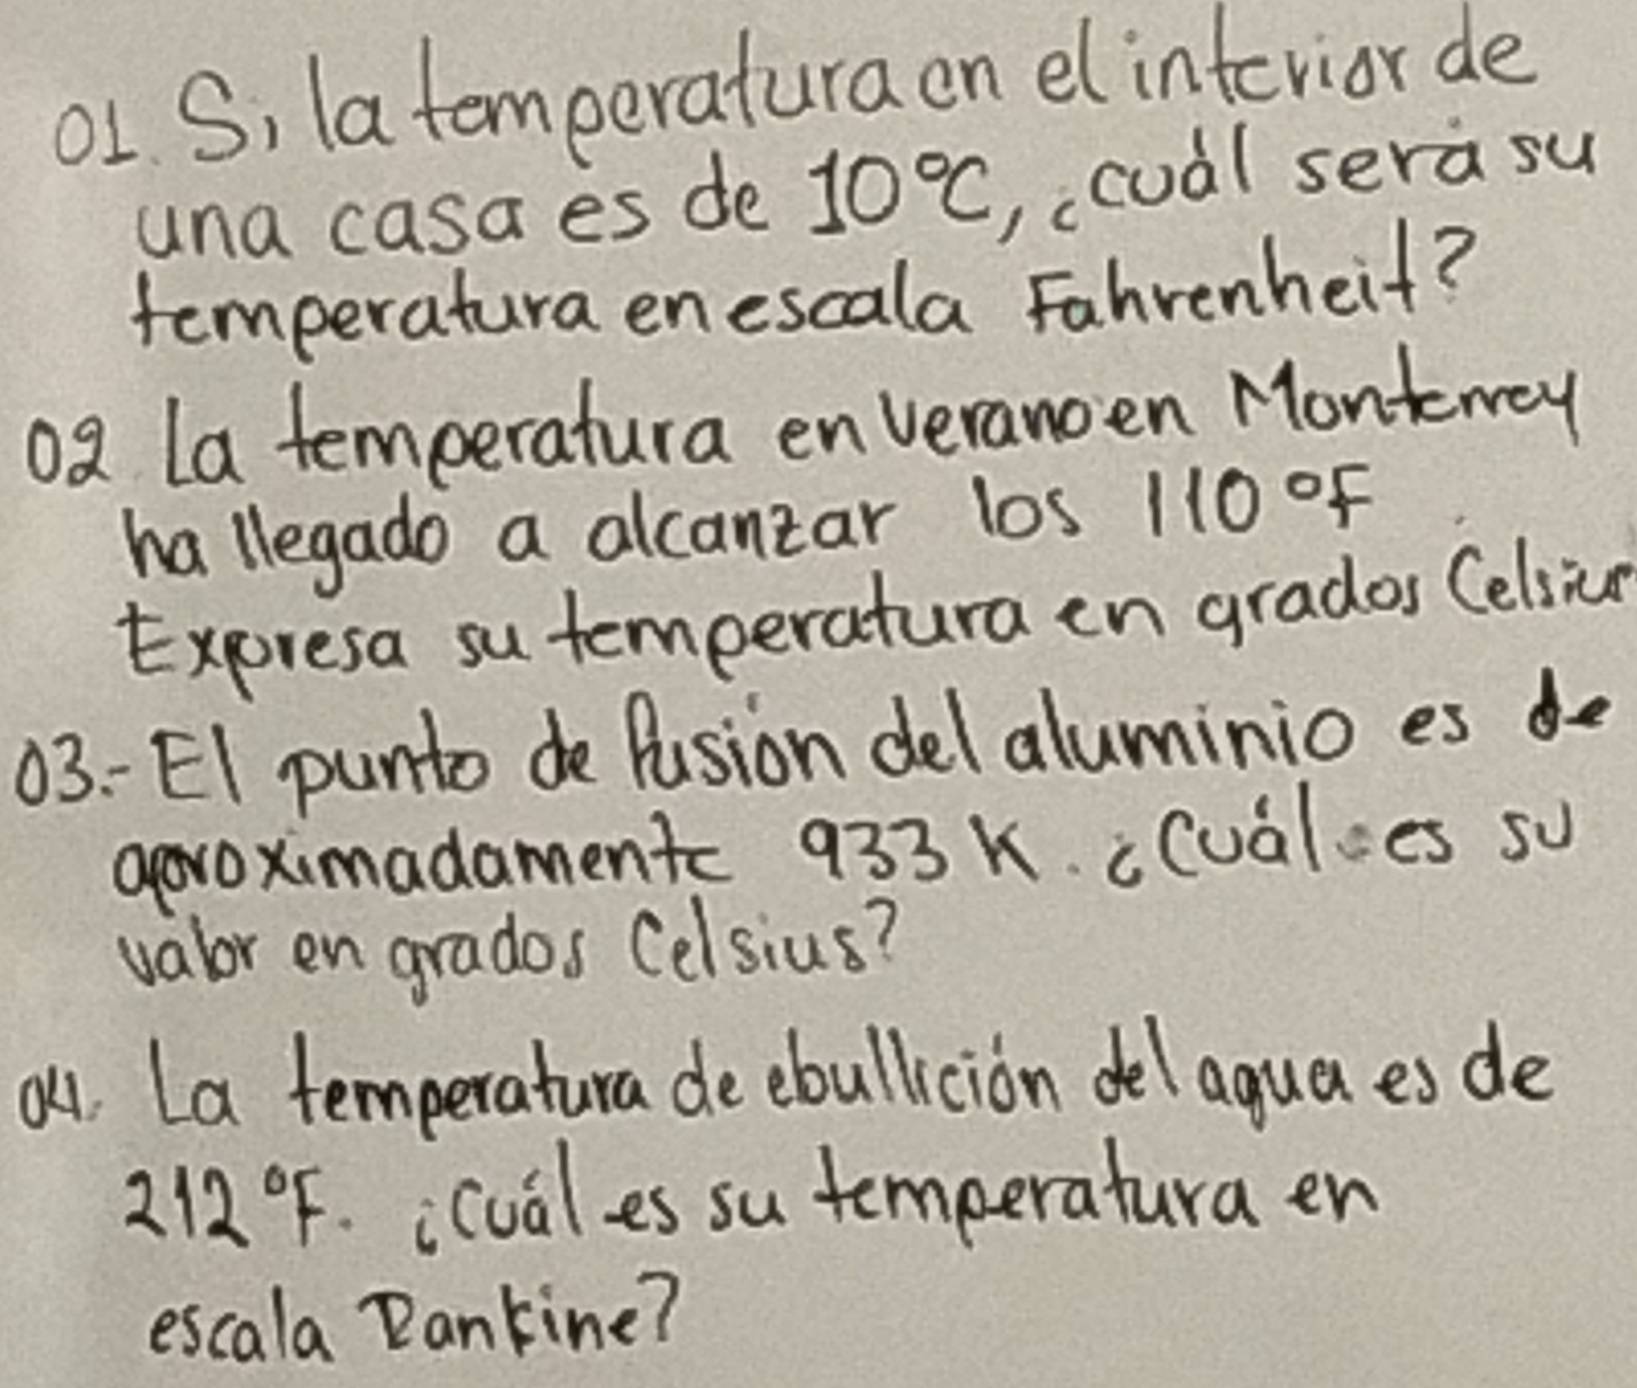 01. Si la temperatura en el interior de
una casa es de 10°C, ¿cuál será su
temperatura en escala Fahrenheit?
02 La temperatura en verano en Monterrey
ha llegado a alcanzar los 110 °F
Expresa su temperatura en grados Celsius
03.- El punto de fusión del aluminio es de
aproximadamente 933 K. ¿Cuál es su
valor en grados Celsius?
04. La temperatura de ebullición del agua es de
212 °F. ¿Cuál es su temperatura en
escala Rankine?